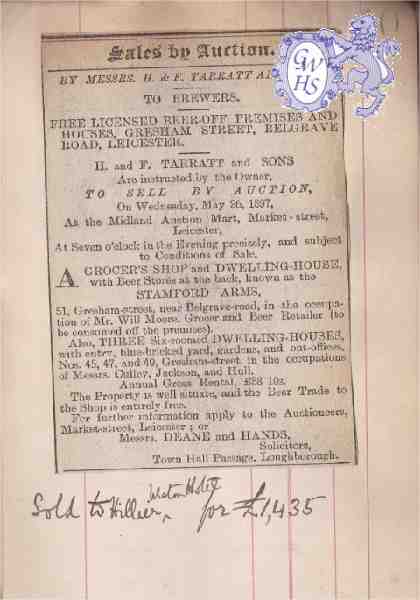 Sales by Auction.
BY MESSRS. H. & F. TARRATT A
TO BREWERS.
FREE LICENSED BEER-OFF PREMISES AND
HOUSES, GRESHAM STREET, BELGRAVE
ROAD, LEICESTER.
H. and F. TARRATT and SONS
Are instructed by the Owner,
TO SELL BY AUCTION,
On Wednesday, May 26, 1897,
At the Midland Auction Mart, Market-street,
Leicester,
At Seven o'clock in the Evening precisely, and subject
to Conditions of Sale.
A GROCER'S SHOP and DWELLING-HOUSE,
with Beer Stores at the back, known as the
STAMFORD ARMS,
51, Gresham-street, near Belgrave-road, in the occupa-
tion of Mr. Will Moore, Grocer and Beer Retailer (to
be consumed off the premises).
Also, THREE Six-roomed DWELLING-HOUSES,
with entry, blue-bricked yard, gardens, and out-offices,
Nos. 45, 47, and 49, Gresham-street, in the occupations
of Messrs. Oxlley, Jackson, and Hull.
Annual Gross Rental, £88 10s.
The Property is well situate, and the Beer Trade to
the Shop is entirely free.
For further information apply to the Auctioneers,
Market-street, Leicester; or
Messrs. DEANE and HANDS,
Solicitors,
Town Hall Passage, Loughborough.
Sold to Hillier, Hotel for £1,435
GWHS